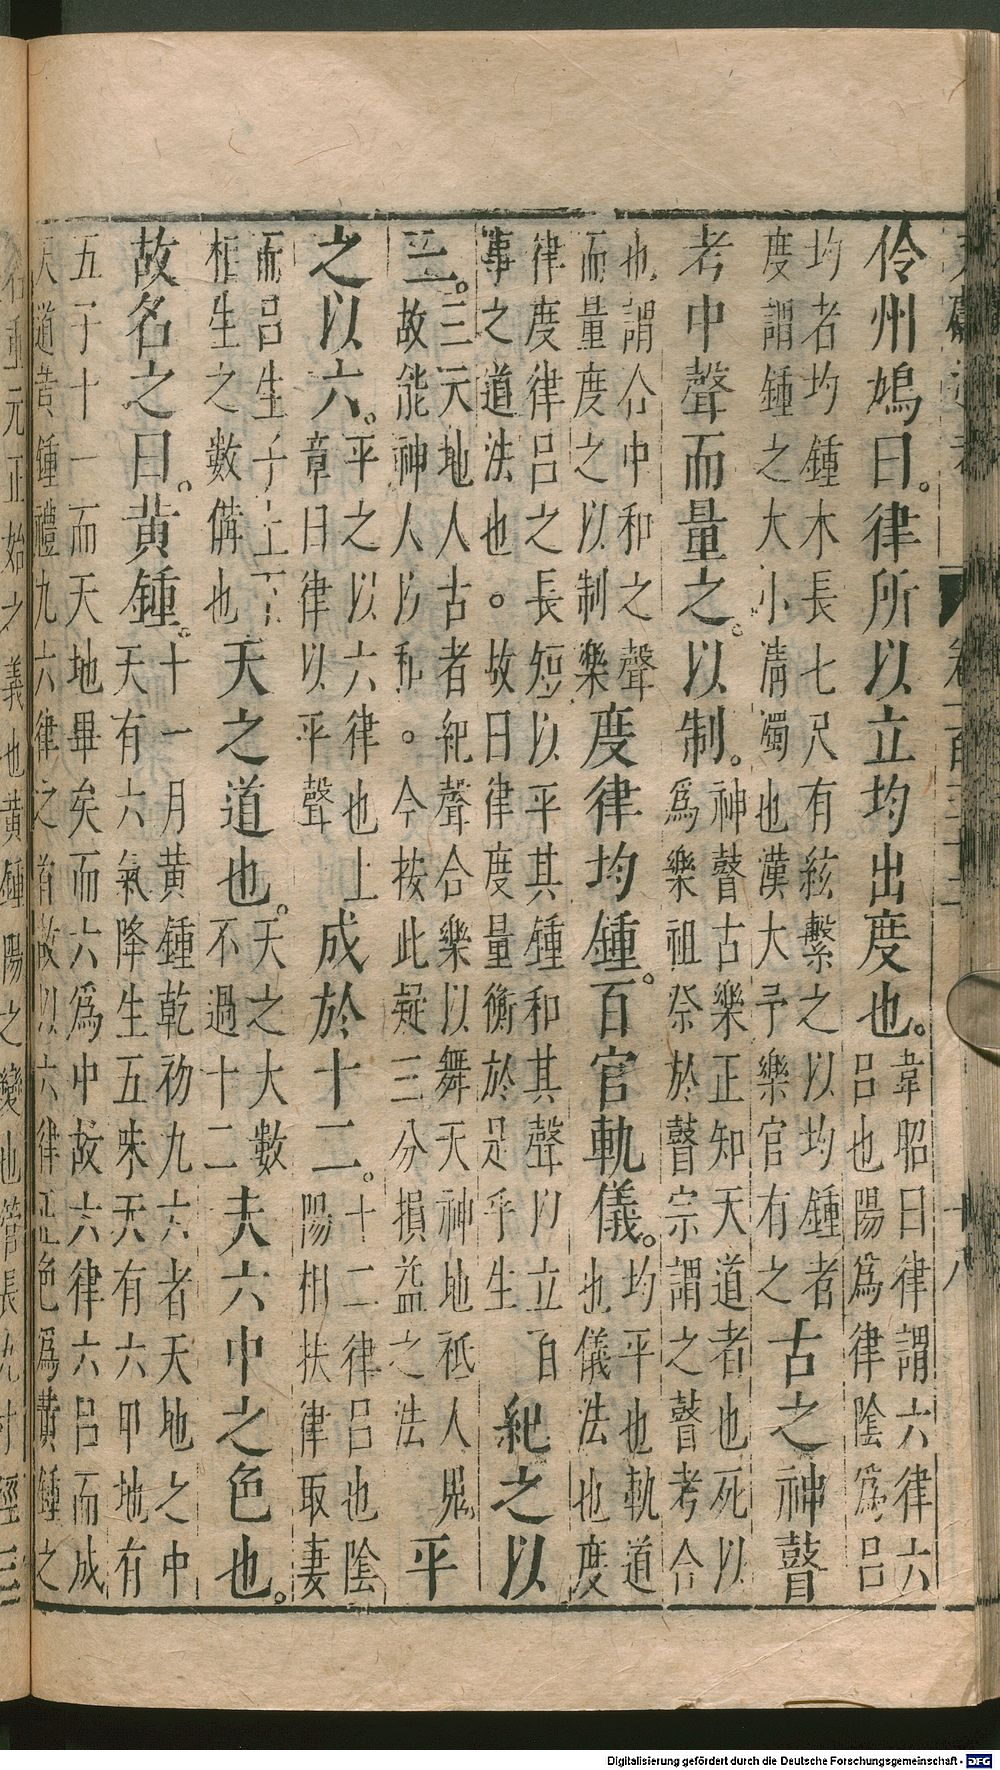 伶州鳩曰。律所以立均出度也。韋昭曰律謂六律六呂也陽爲律陰爲呂
均者均鍾木長七尺有絃繫之以均鍾者度謂鍾之大小淸濁也漢大予樂官有之古之神瞽
考中聲而量之。以制。神瞽古樂正知天道者也死以爲樂祖祭於瞽宗謂之瞽考合
也謂合中和之聲而量度之以制樂度律均鍾。百官軌儀。均平也軌道也儀法也度
律度律呂之長短以平其鍾和其聲以立百事之道法也。故曰律度量衡於是乎生紀之以
三。三天地人古者紀聲合樂以舞天神地祗人鬼故能神人以和。今按此疑三分損益之法平
之以六。平之以六律也上章曰律以平聲成於十二。十二律呂也陰陽相扶律取妻
而呂生子上下相生之數備也天之道也。天之大數不過十二夫六中之色也。
故名之曰。黄鍾。十一月黄鍾乾初九六者天地之中天有六氣降生五味天有六甲地有
五子十一而天地畢矣而六爲中故六律六呂而成天道黄鍾禮九六律之首故以六律正色爲黄鍾之
名重元正始之義也黄鍾陽之變也管長九寸徑三
十八
Digitalisierung gefördert durch die Deutsche Forschungsgemeinschaft - DFG